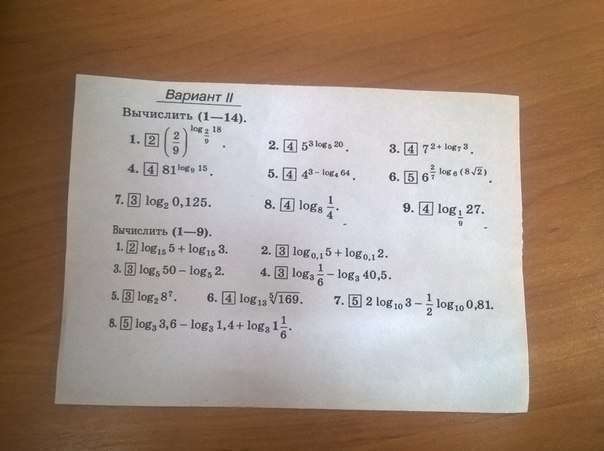 Вариант II
Вычислить (1—14).
1. [2] (2/9)^(log_(2/9) 18). 2. [4] 5^(3 log_5 20). 3. [4] 7^(2+log_7 3).
4. [4] 81^(log_9 15). 5. [4] 4^(3−log_4 64). 6. [5] 6^(2/7 log_6 (8√2)).
7. [3] log_2 0,125. 8. [4] log_8 1/4. 9. [4] log_(1/9) 27.
Вычислить (1—9).
1. [2] log_15 5 + log_15 3. 2. [3] log_0,1 5 + log_0,1 2.
3. [3] log_5 50 − log_5 2. 4. [3] log_3 1/6 − log_3 40,5.
5. [3] log_2 8^7. 6. [4] log_13 ⁵√169. 7. [5] 2 log_10 3 − 1/2 log_10 0,81.
8. [5] log_3 3,6 − log_3 1,4 + log_3 1 1/6.